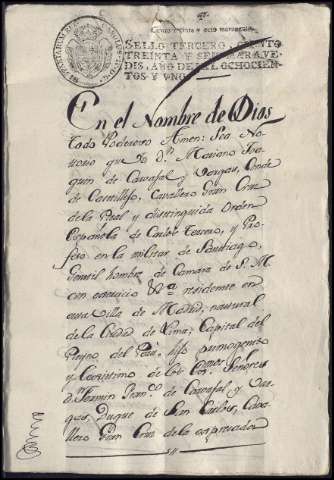 SELLO TERCERO, CIENTO
TREINTA Y SEIS MARAVE-
DIS, AÑO DE MIL OCHOCIEN-
TOS Y UNO.
En el Nombre de Dios
todo Poderoso Amen: Sea No-
torio que Yo Dn. Mariano Joa-
quin de Carvajal y Vargas, Conde
de Castillejo, Cavallero Gran Cruz
de la Real y distinguida Orden
Española de Carlos Tercero, y Pro-
feso en la militar de Santiago,
Gentil hombre de Camara de S. M.
con exercicio &ra. residente en
esta Villa de Madrid, natural
de la Ciudad de Lima, Capital del
Reyno del Perú, hijo primogenito
y lexitimo de los Exmos. Señores
Dn. Fermin Franco. de Carvajal y Var-
gas, Duque de San Carlos, Caba-
llero Gran Cruz de la expresada